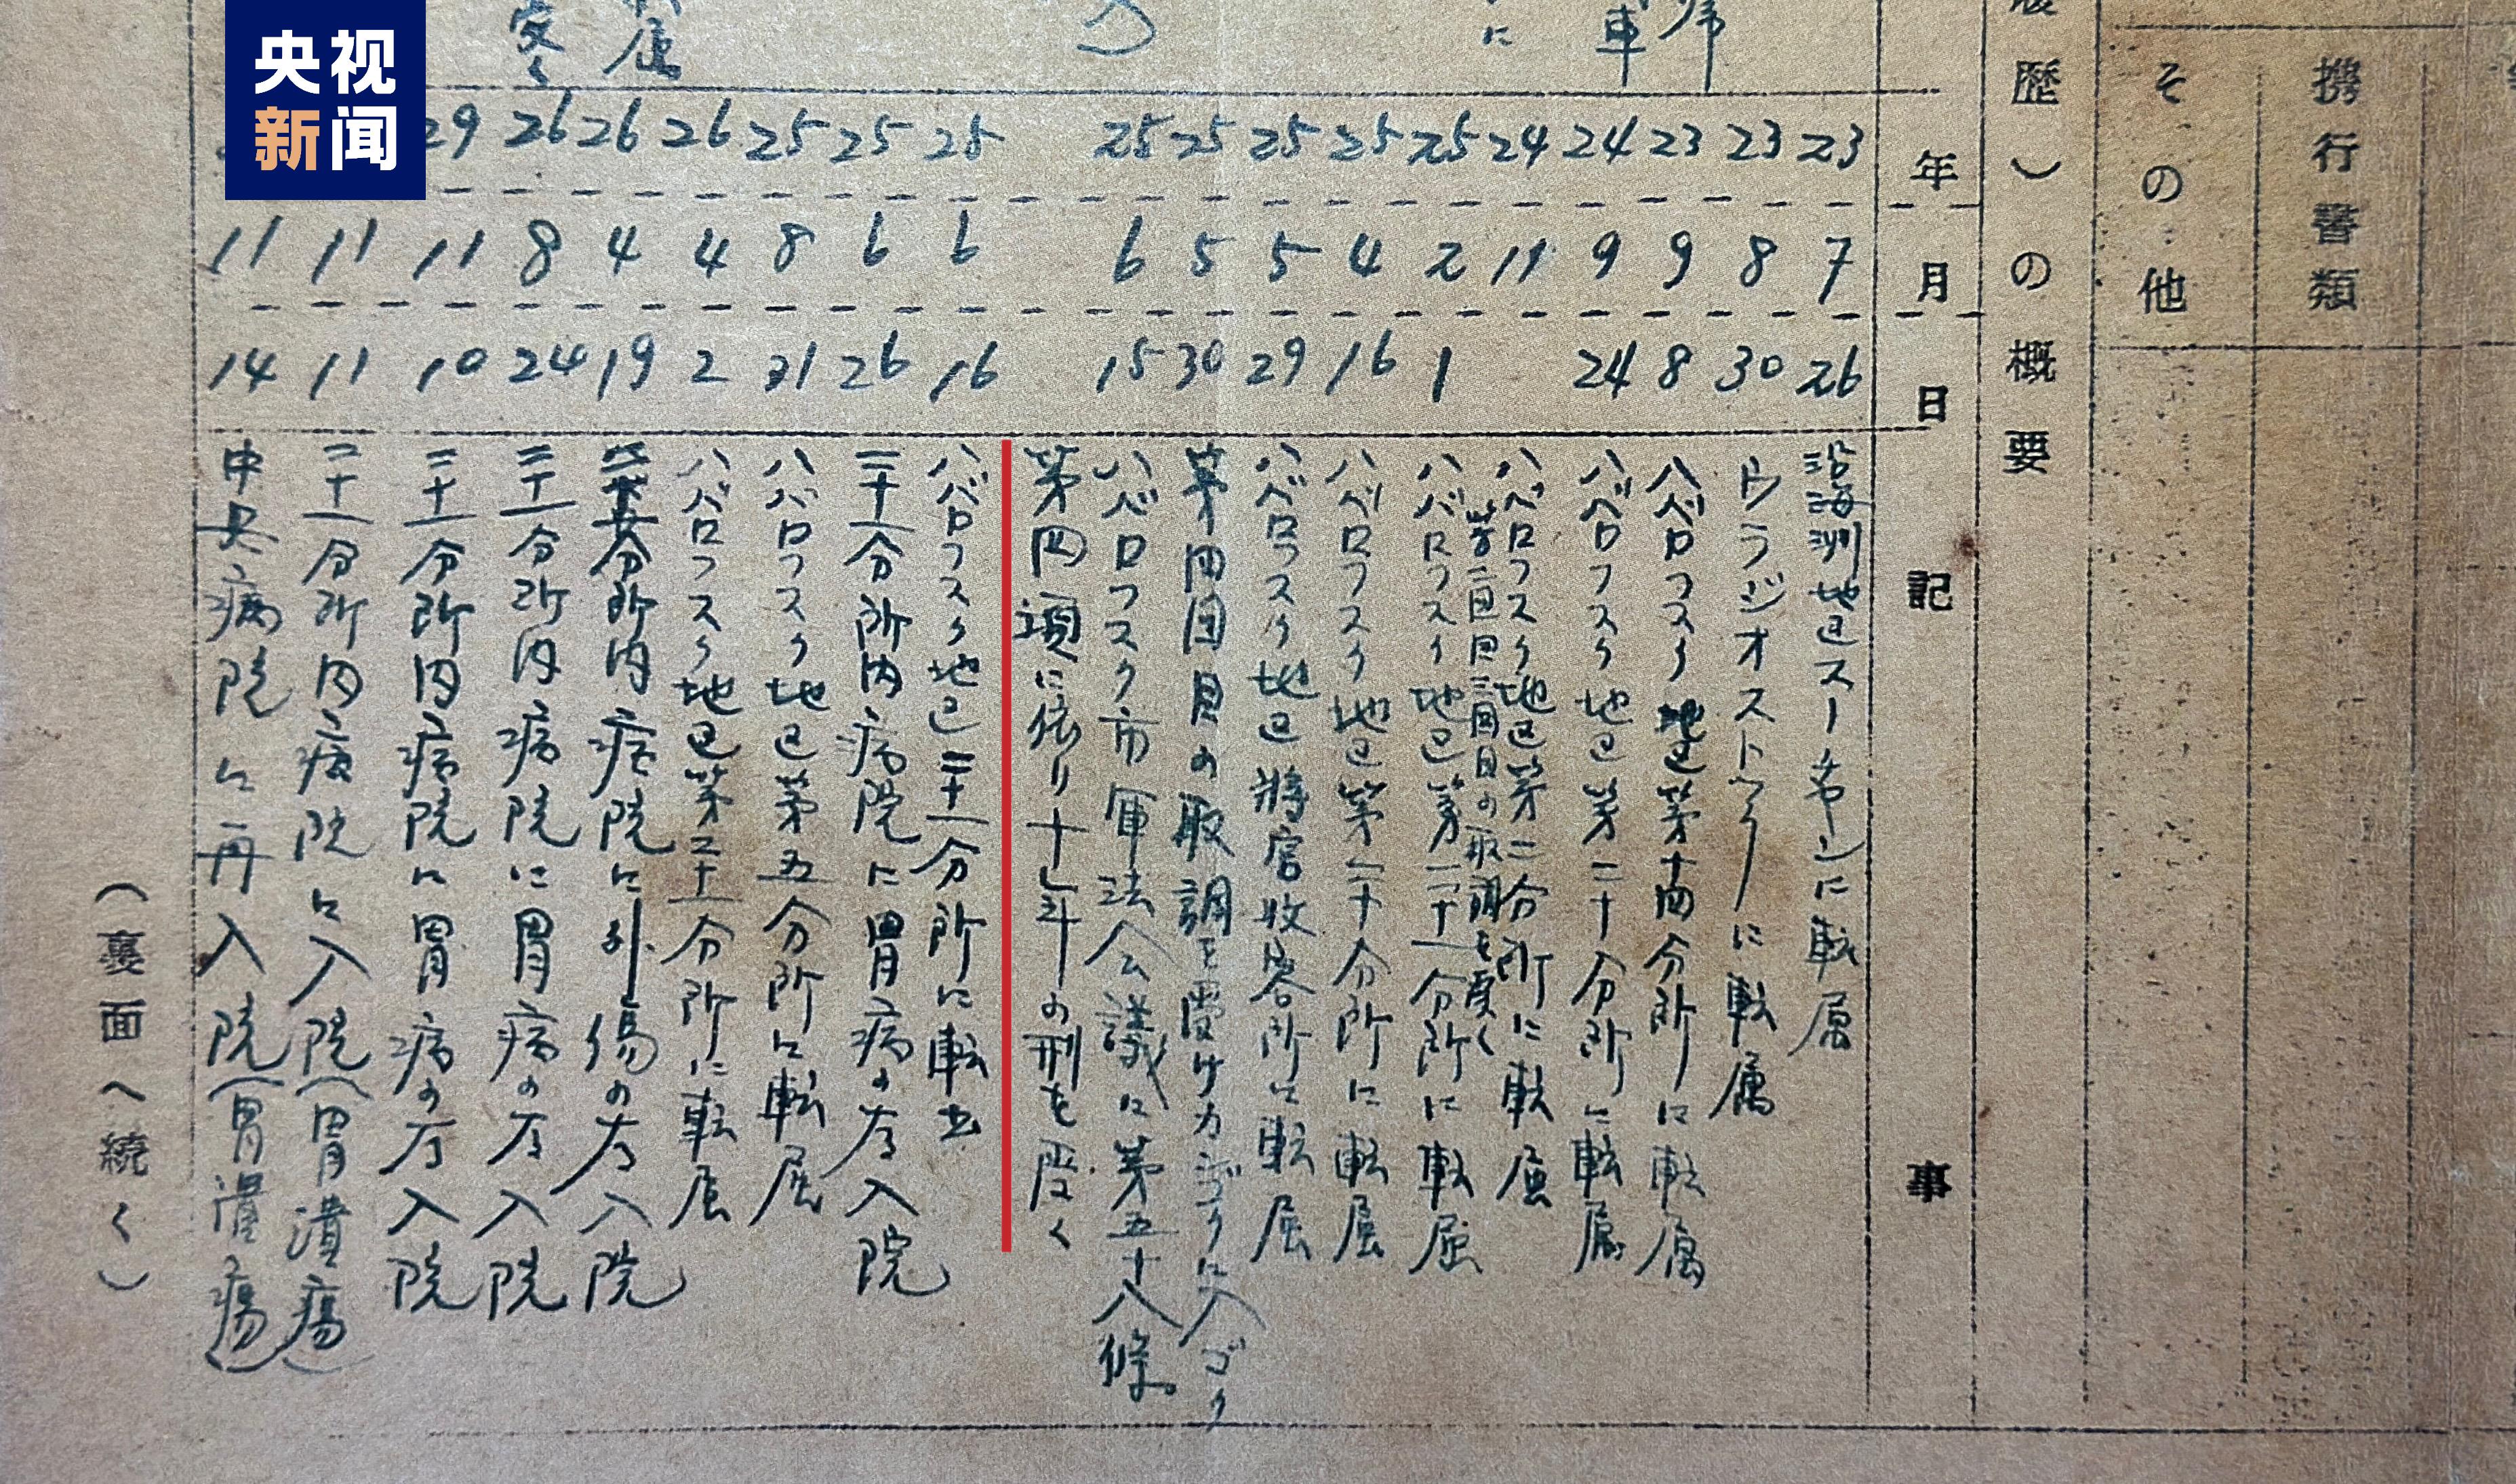 央视
新闻
携行書類
その他
歴)の概要
年
月
日
記事
23 7 26 沿海洲地区スーチヤンに転属
23 8 30 ウラジオストックに転属
23 9 8 ハバロフスク地区第十四分所に転属
24 9 24 ハバロフスク地区第二十分所に転属
24 11 ハバロフスク地区第二分所に転属
第二回三回目の取調を受く
25 2 1 ハバロフスク地区第二十一分所に転属
25 4 16 ハバロフスク地区第二十分所に転属
25 5 29 ハバロフスク地区将官收容所に転属
25 5 30 第四回目の取調を受けカゴクに入ゴク
25 6 15 ハバロフスク市軍法会議に第五十八條
第四項に依り十年の刑を受く
25 6 16 ハバロフスク地区二十一分所に転出
25 6 26 二十一分所内病院に胃病の為入院
25 8 31 ハバロフスク地区第五分所に転属
26 4 2 ハバロフスク地区第二十一分所に転属
26 4 19 分所内病院に外傷の為入院
26 8 24 二十一分所内病院に胃病の為入院
29 11 10 二十一分所内病院に胃病の為入院
11 11 二十一分所内病院に入院(胃潰瘍)
11 14 中央病院に再入院(胃潰瘍)
(裏面へ続く)